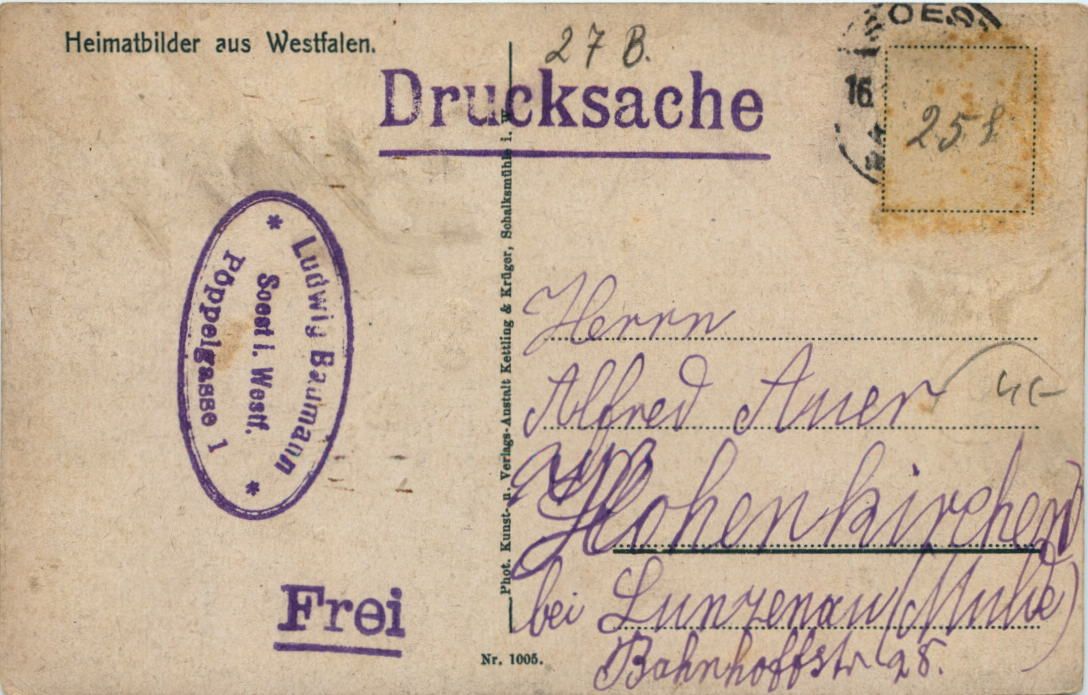 Heimatbilder aus Westfalen.
27 B.
Drucksache
SOEST
16
25
Ludwig Baumann
Soest i. Westf.
Pöppelgasse 1
Phot. Kunst- u. Verlags-Anstalt Kettling & Krüger, Schalksmühle i. W.
Herrn
Alfred Auer
4.-
Hohenkirchen
bei Lunzenau (Mulde)
Bahnhoffstr 28.
Frei
Nr. 1005.